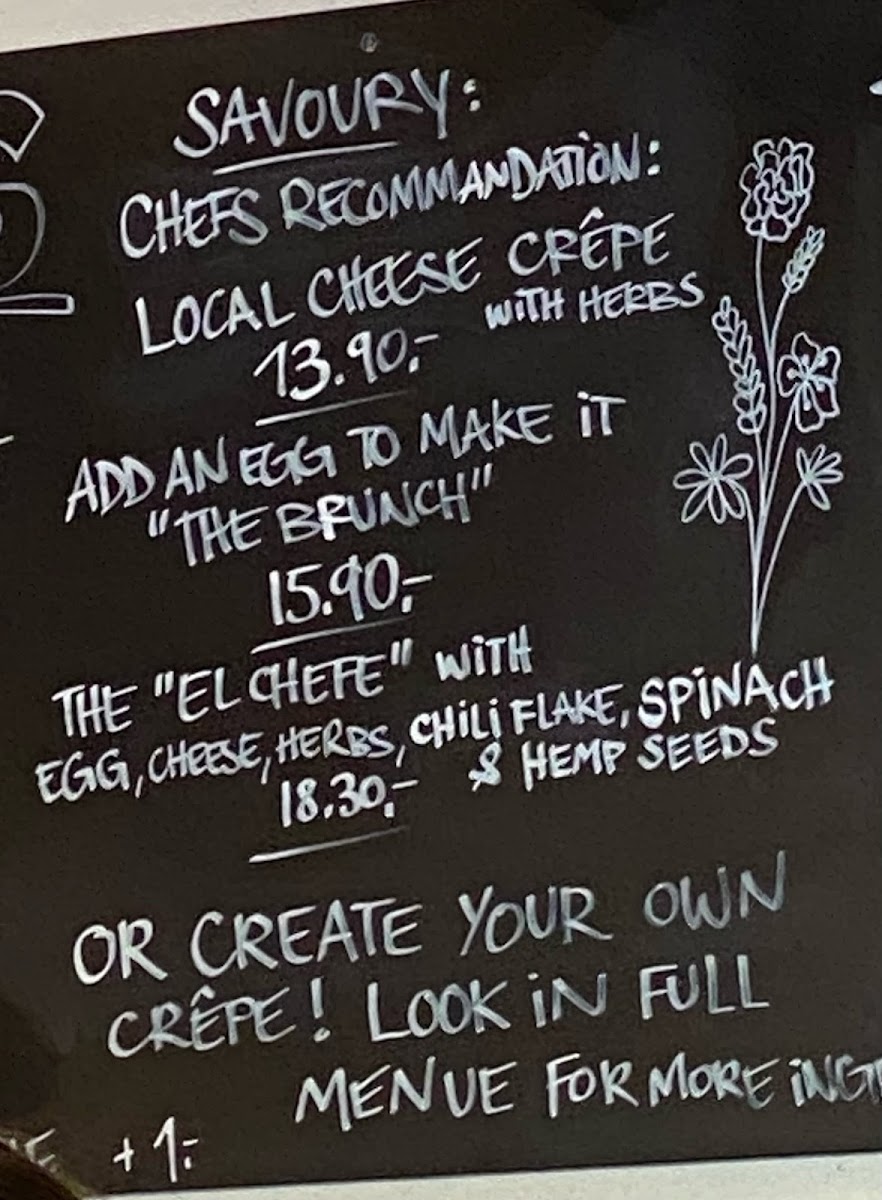 SAVOURY:
CHEFS RECOMMANDATION:
LOCAL CHEESE CRÊPE
WITH HERBS
13.90.-
ADD AN EGG TO MAKE IT
"THE BRUNCH"
15.90.-
THE "EL CHEFE" WITH
EGG, CHEESE, HERBS, CHILI FLAKE, SPINACH
& HEMP SEEDS
18.30.-
OR CREATE YOUR OWN
CRÊPE! LOOK IN FULL
MENUE FOR MORE
+ 1.-